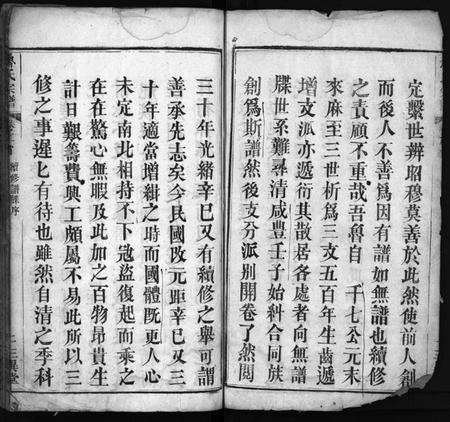 定繫世辨昭穆莫善於此然使前人創
而後人不善為因有譜如無譜也續修
之責顧不重哉吾魯自 千七公元末
來麻至三世析為三支五百年生齒遞
增支派亦遞衍其散居各處者向無譜
牒世系難尋清咸豊壬子始糾合同族
創為斯譜然後支分派別開卷了然閱
三十年光緒辛巳又有續修之舉可謂
善承先志矣今民國改元距辛巳又三
十年適當增緝之時而國體旣更人心
未定南北相持不下冦盜復起而乘之
在在驚心無暇及此加之百物昂貴生
計日艱籌費興工頗屬不易此所以三
修之事遲上有待也雖然自清之季科
續修譜序